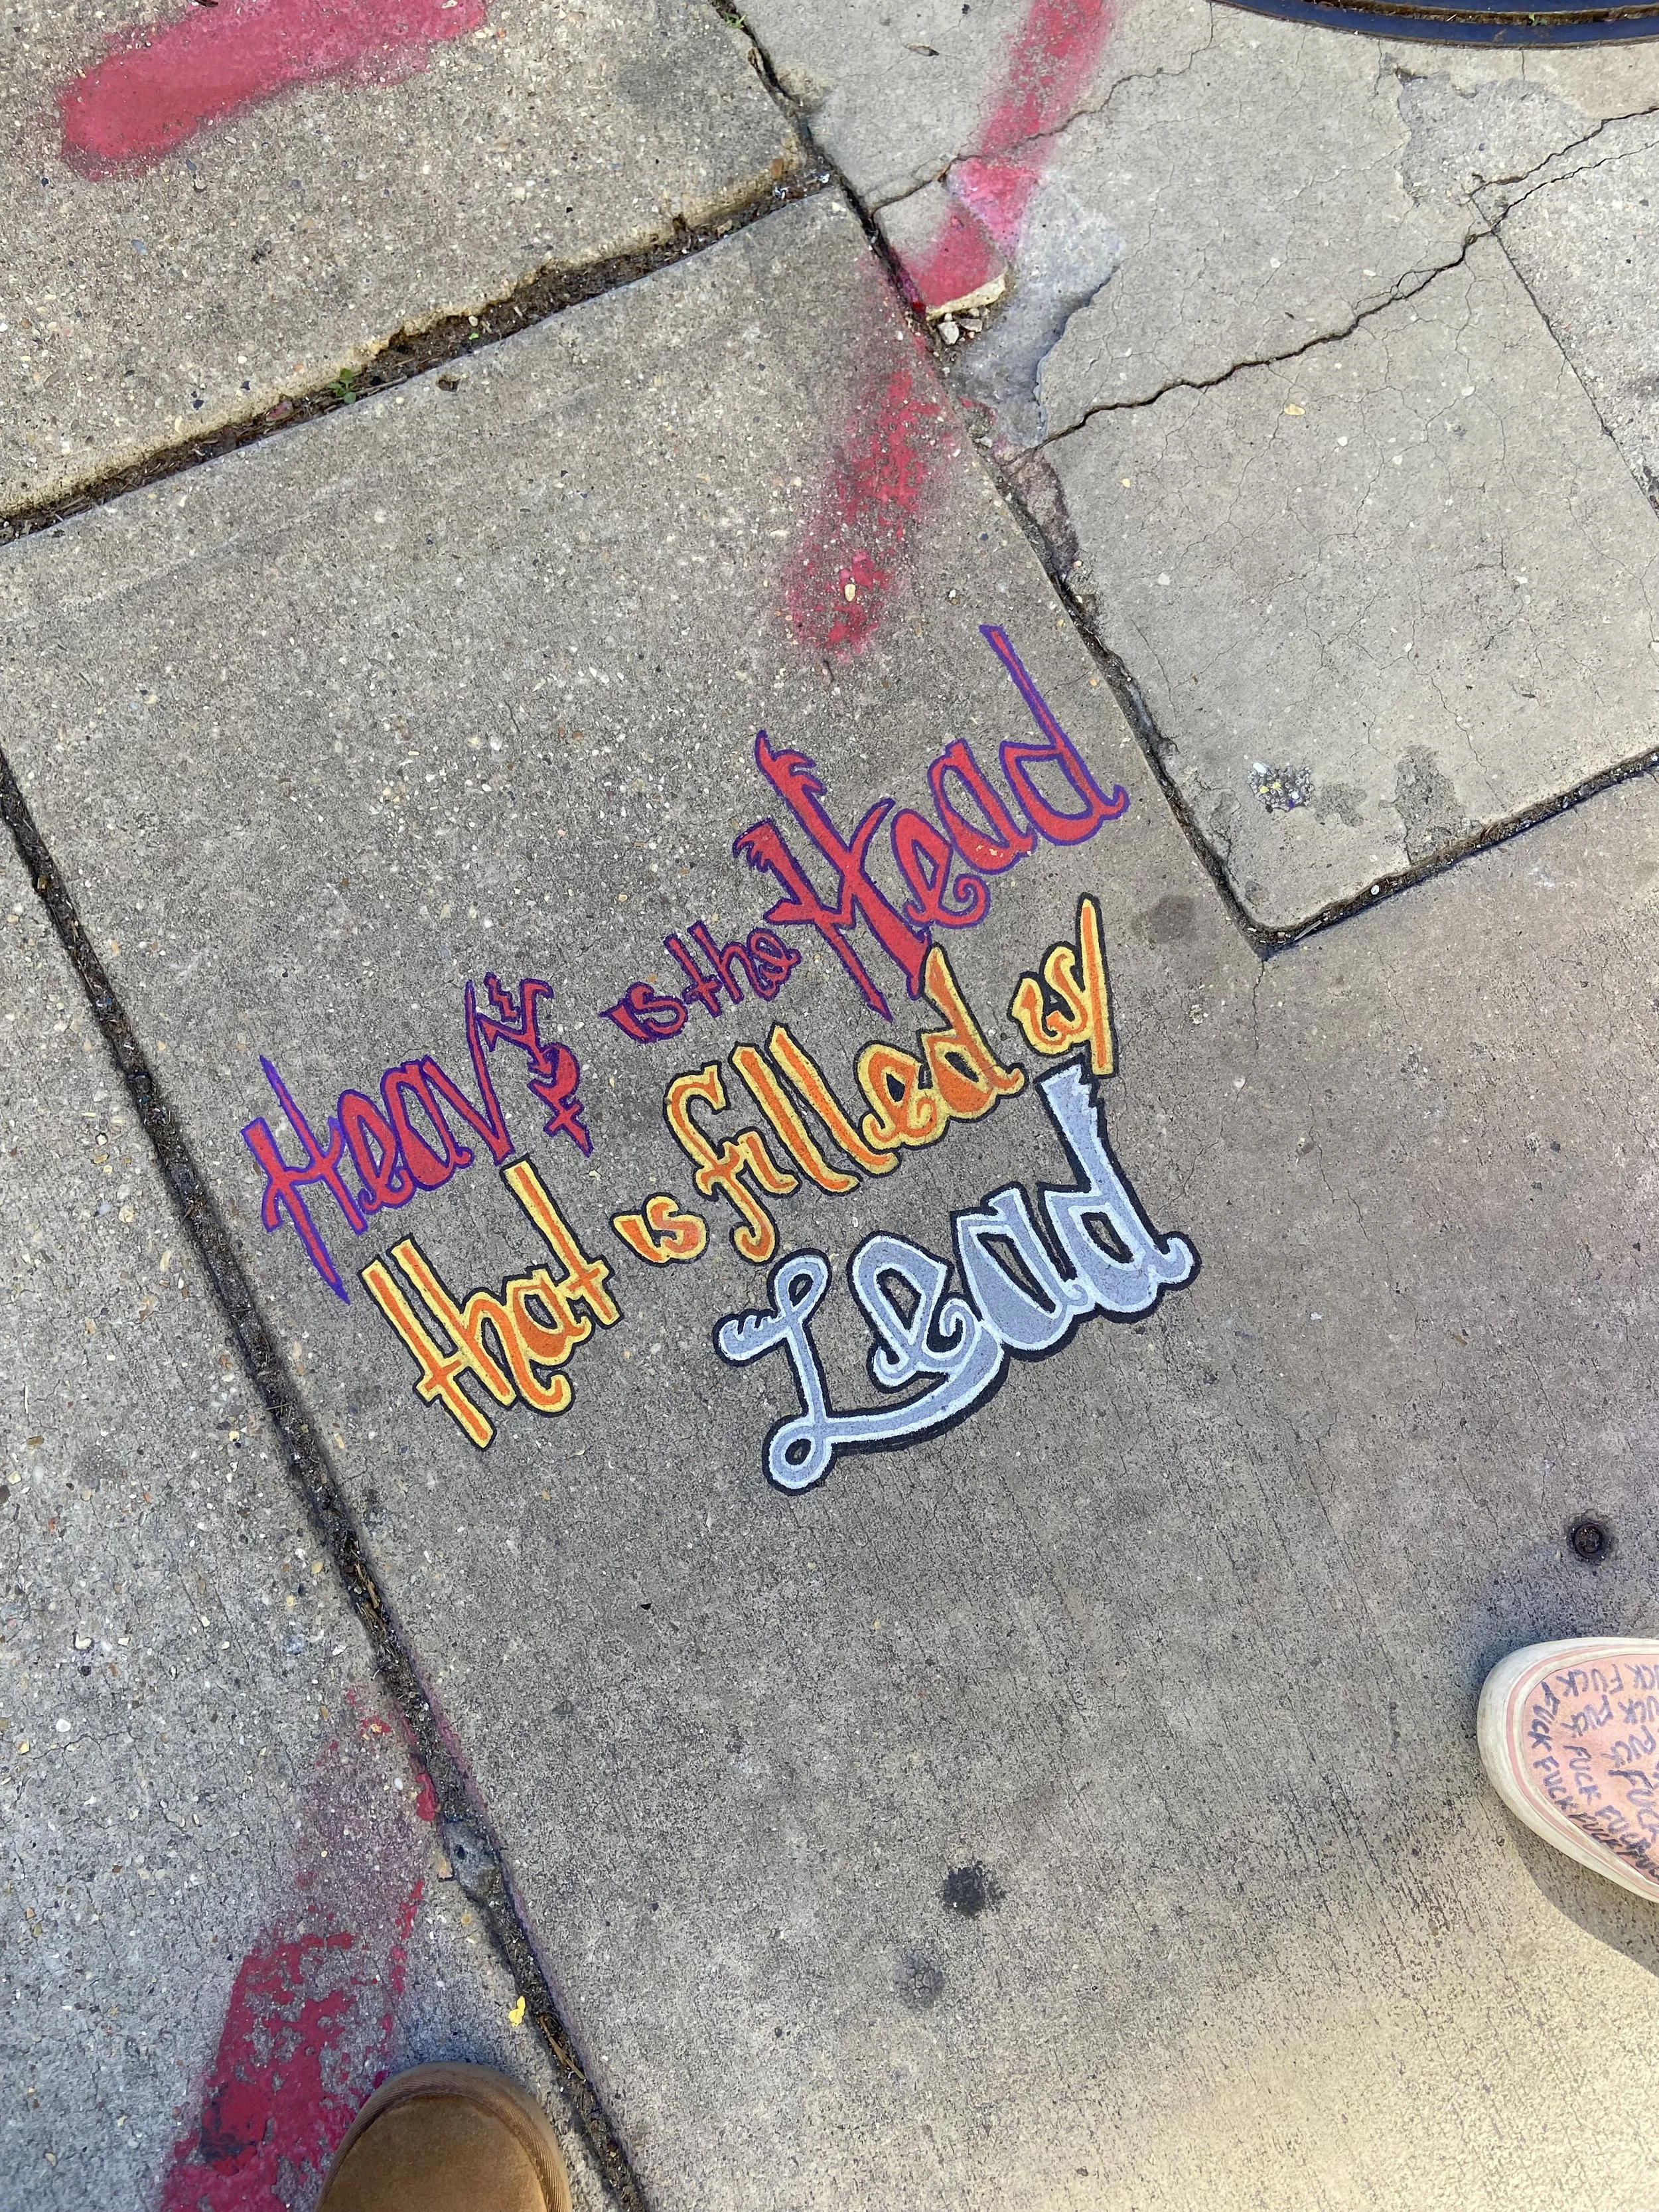 Heavy is the Head
that is filled w/
Lead
FUCK FUCK
FUCK FUCK FUCK
FUCK FUCK FUCK